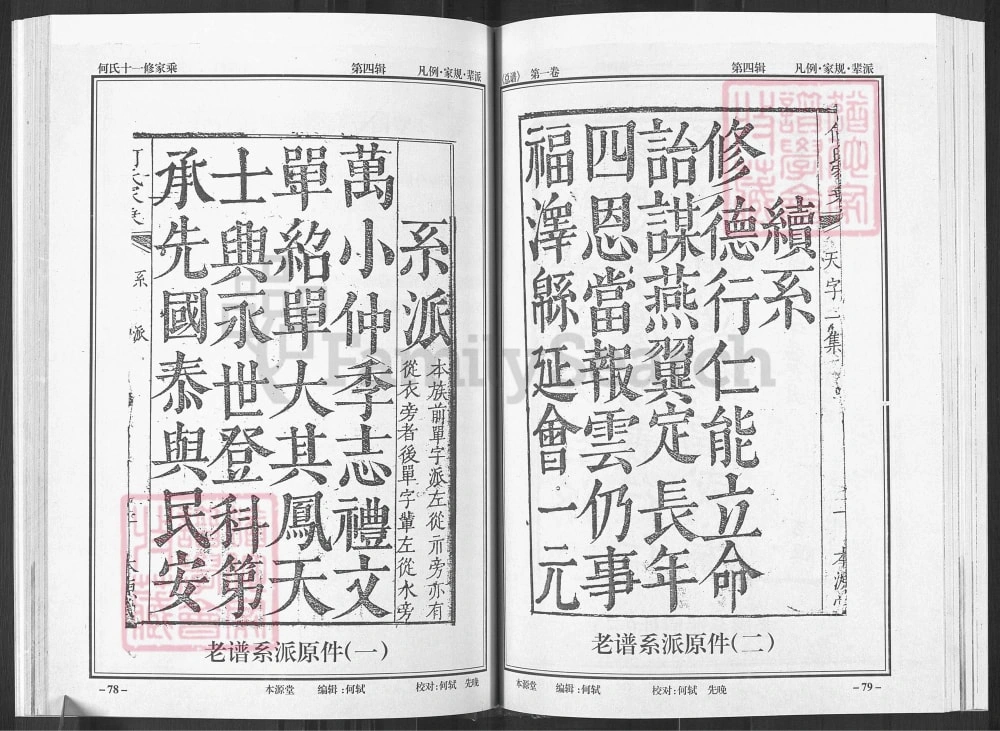 何氏十一修家乘
第四辑
凡例·家规·辈派
系派
本族前單字派左從示旁亦有
從衣旁者後單字輩左從水旁
萬小仲季志禮文
單紹單大其鳳天
士典永世登科第
承先國泰與民安
系
派
老谱系派原件(一)
-78-
本源堂
编辑:何轼
校对:何轼 先晚
(总谱) 第一卷
第四辑
凡例·家规·辈派
天字一集
續系
修德行仁能立命
詒謀燕翼定長年
四恩當報雲仍事
福澤緜延會一元
老谱系派原件(二)
本源堂
编辑:何轼
校对:何轼 先晚
-79-
FamilySearch